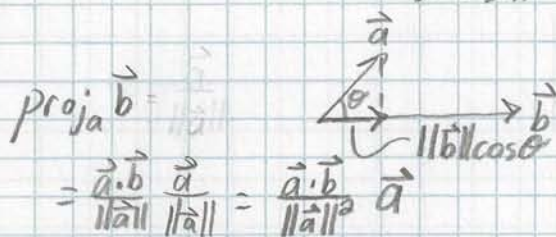 a⃗
proj_a b⃗ =
θ
b⃗
||b⃗||cosθ
= (a⃗·b⃗)/||a⃗|| a⃗/||a⃗|| = (a⃗·b⃗)/||a⃗||² a⃗